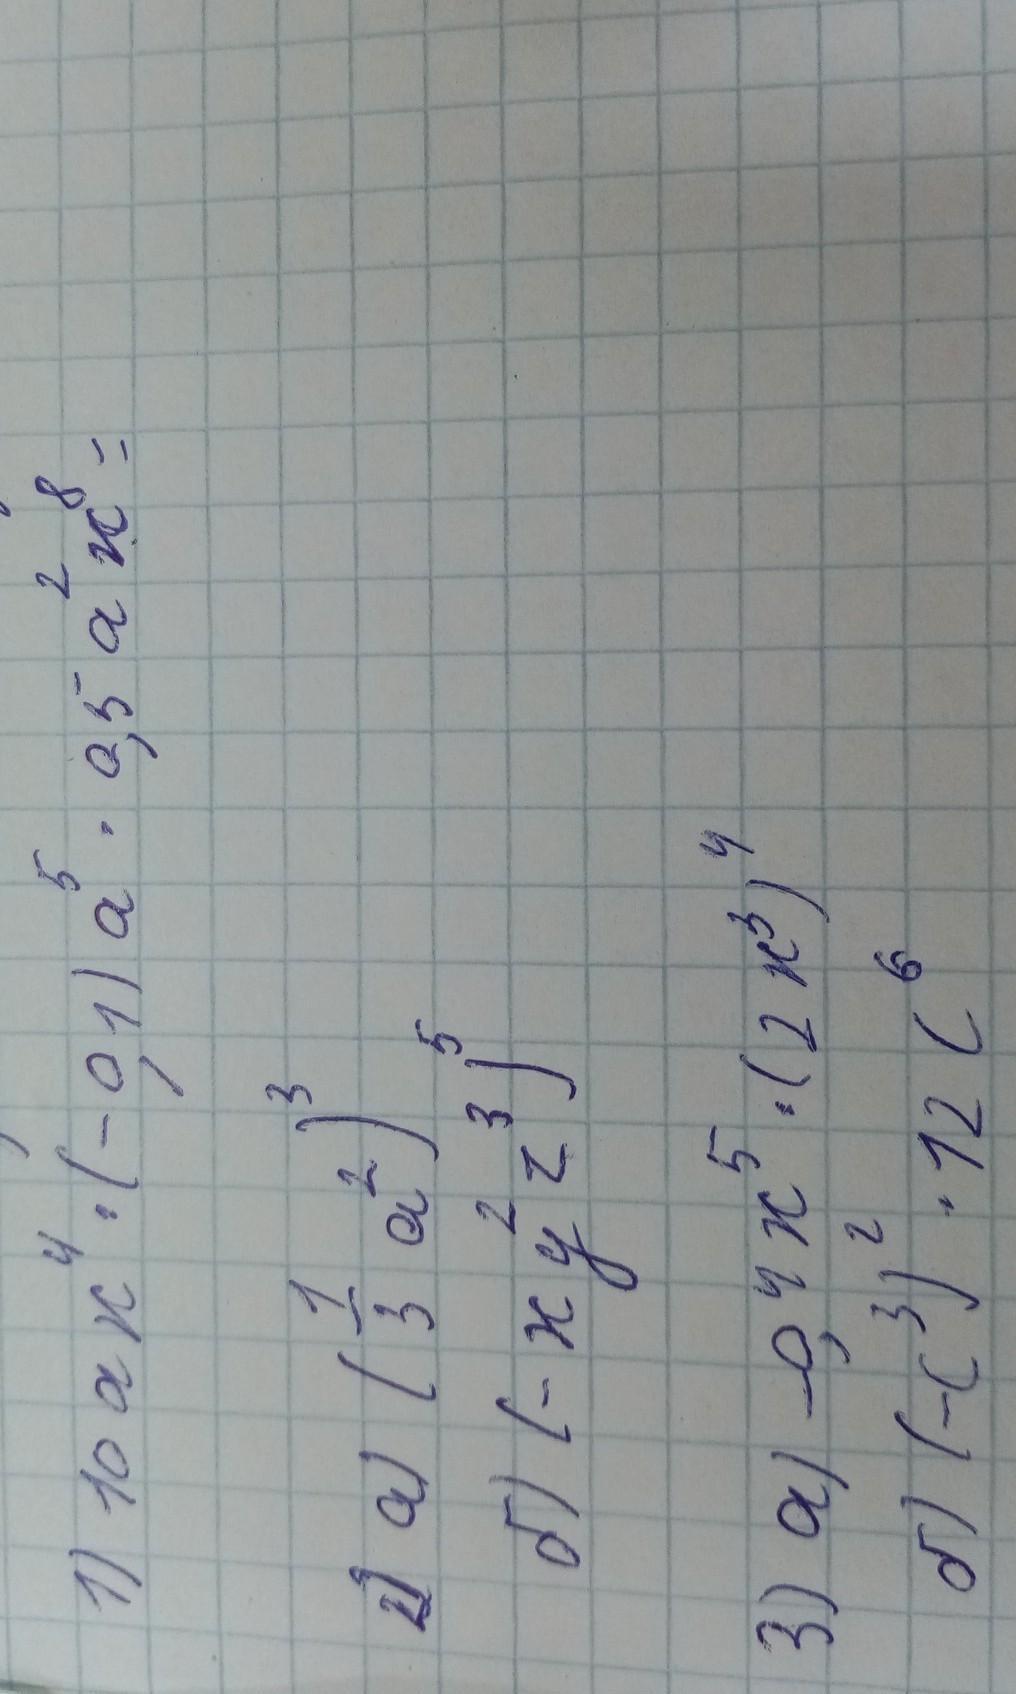 1) 10ax⁴·(-0,1)a⁵·0,5a²x⁸=
2) а) (1/3 a²)³
б) (-xy²z³)⁵
3) а) -0,4x⁵·(2x³)⁴
б) (-c³)²·12c⁶